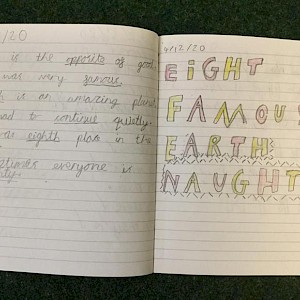 /20
is the opposite of good
was very famous
is an amazing planet
had to continue quietly.
eighth place in the
everyone is
4/12/20
EiGHT
FAMOUS
EARTH
NAUGHT